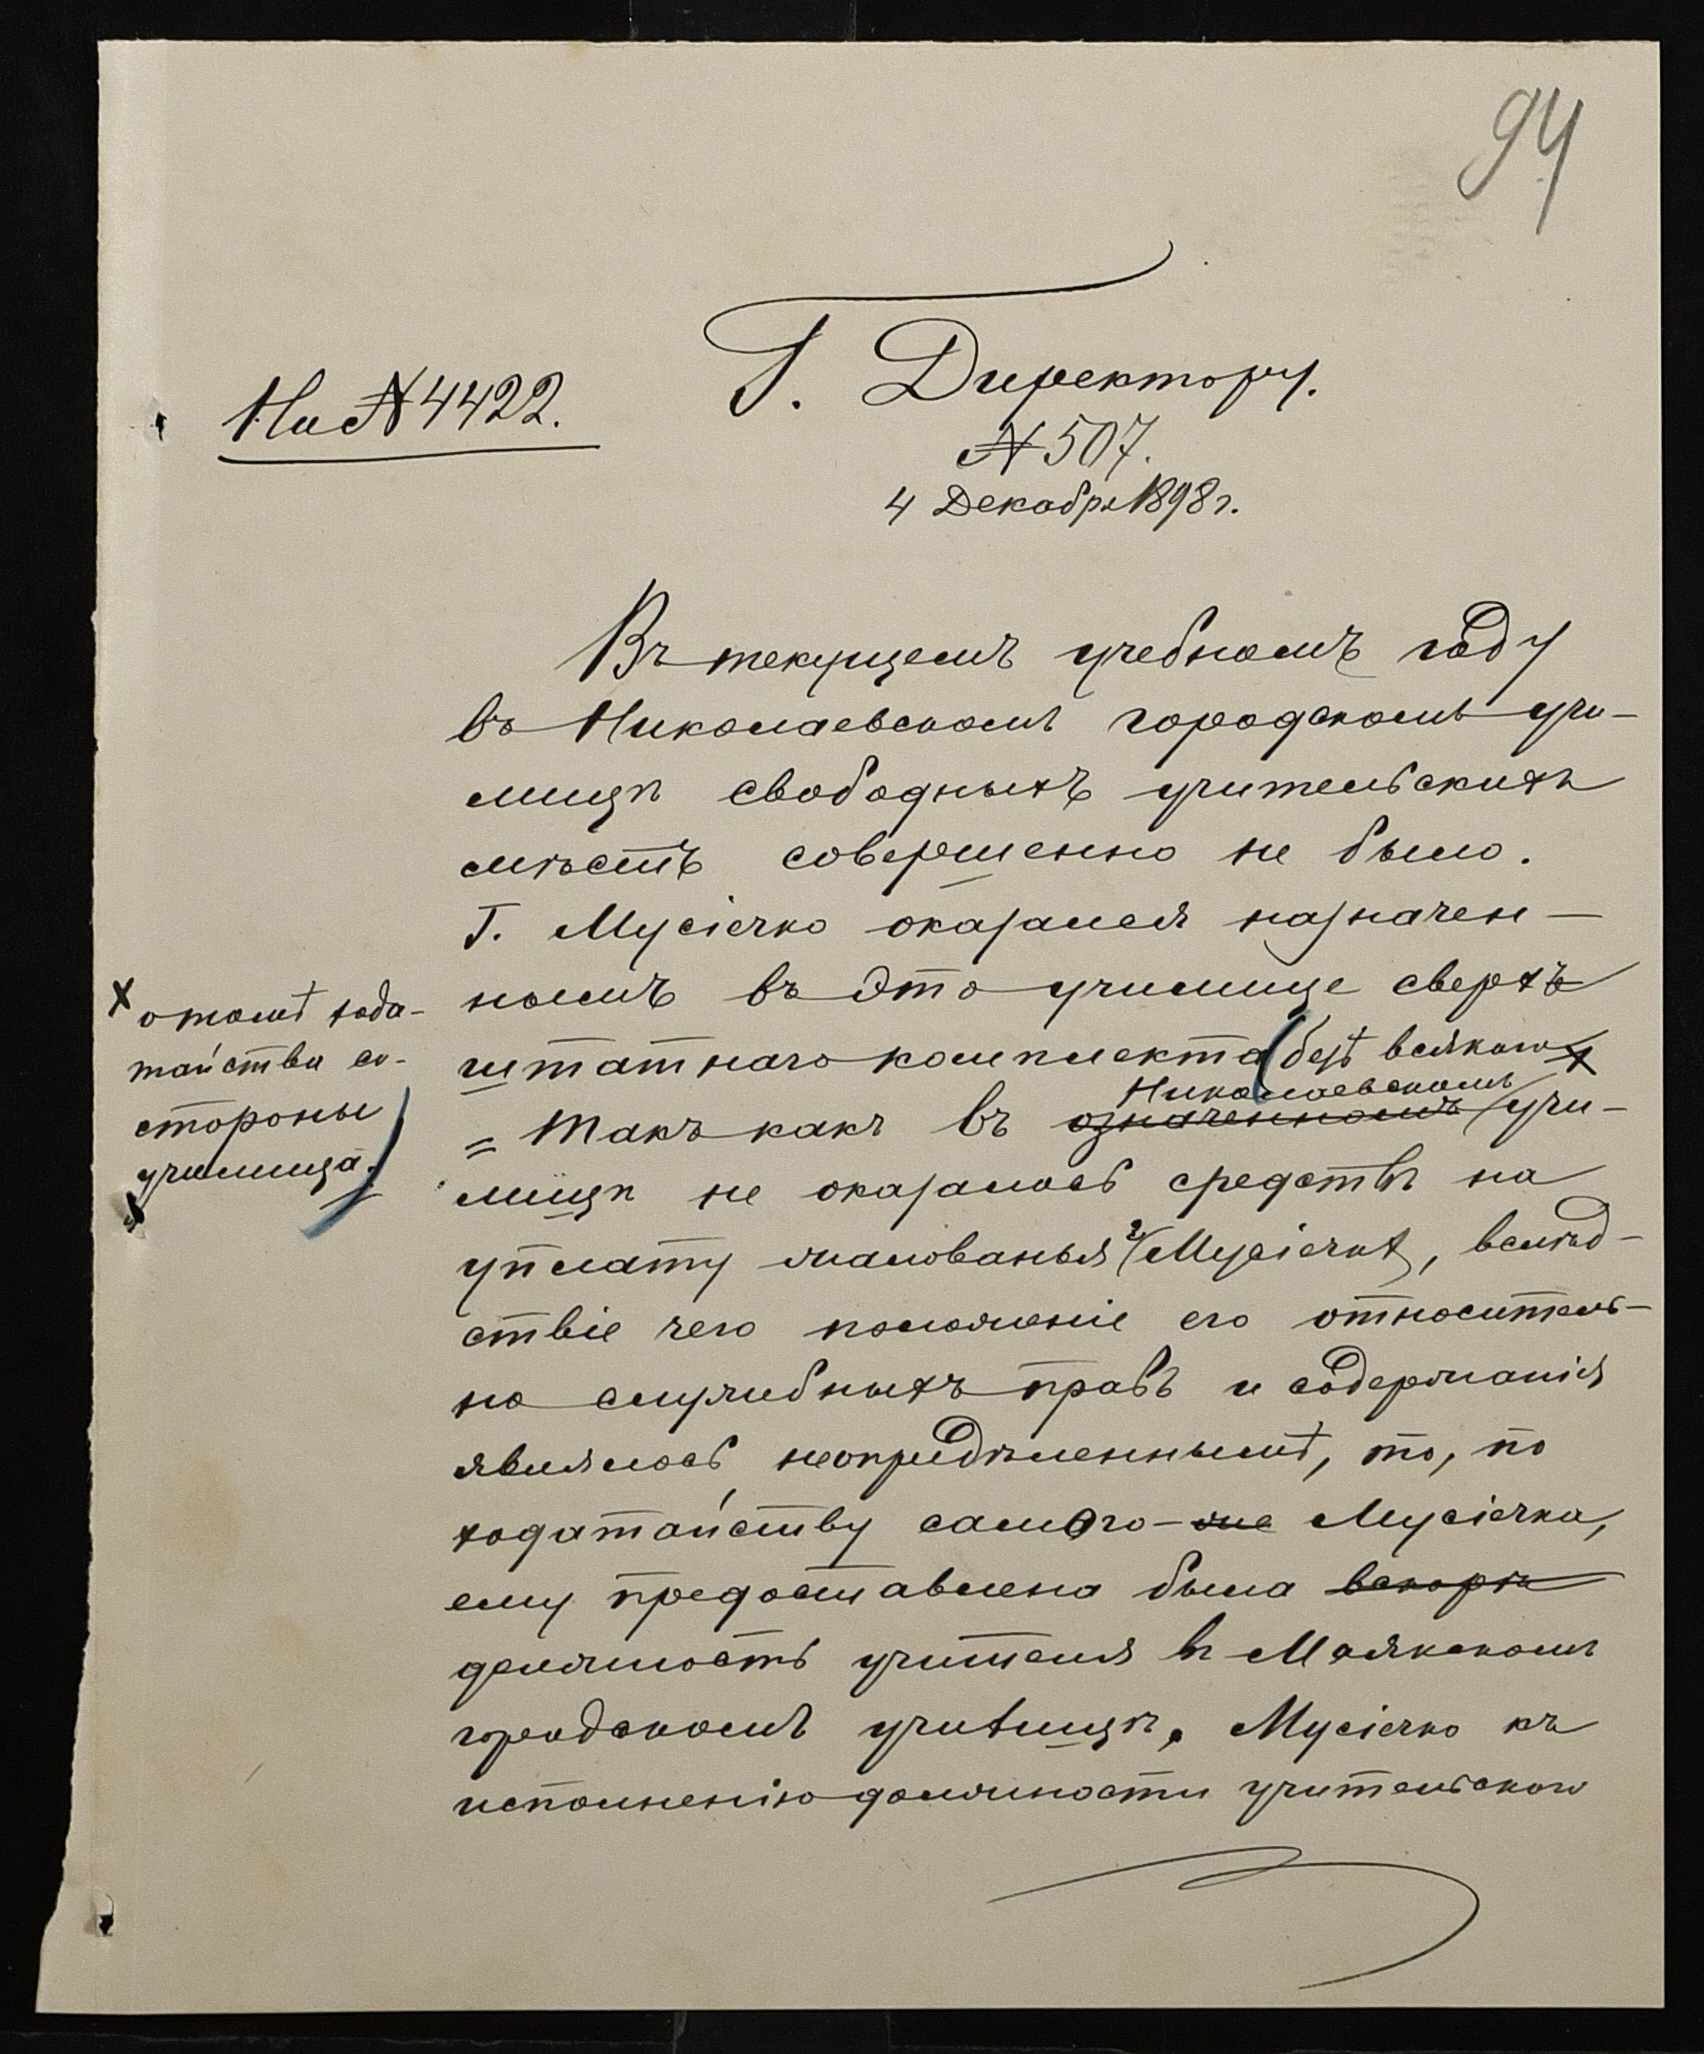 94
Г. Директору.
На № 4422.
№ 507.
4 Декабря 1898 г.
Въ текущемъ учебномъ году
въ Николаевскомъ городскомъ учи-
лищѣ свободныхъ учительскихъ
мѣстъ совершенно не было.
Г. Мусіечко оказался назначен-
нымъ въ это училище сверхъ
штатнаго комплекта (безъ всякаго х
х о томъ хода-
тайства со
стороны
училища.)
Николаевскомъ
= Такъ какъ въ означенномъ учи-
лищѣ не оказалось средствъ на
уплату жалованья г. Мусіечкѣ, вслѣд-
ствіе чего положеніе его относитель-
но служебныхъ правъ и содержанія
являлось неопредѣленнымъ, то, по
ходатайству самого-же Мусіечка,
ему предоставлена была вскорѣ
должность учителя въ Маякскомъ
городскомъ училищѣ. Мусіечко къ
исполненію должности учительского